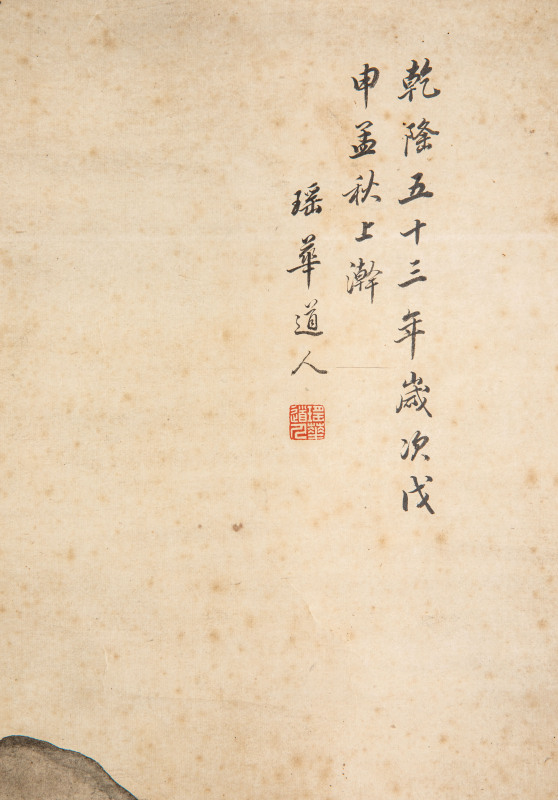 乾隆五十三年歲次戊
申孟秋上澣
瑶華道人
瑶華道人